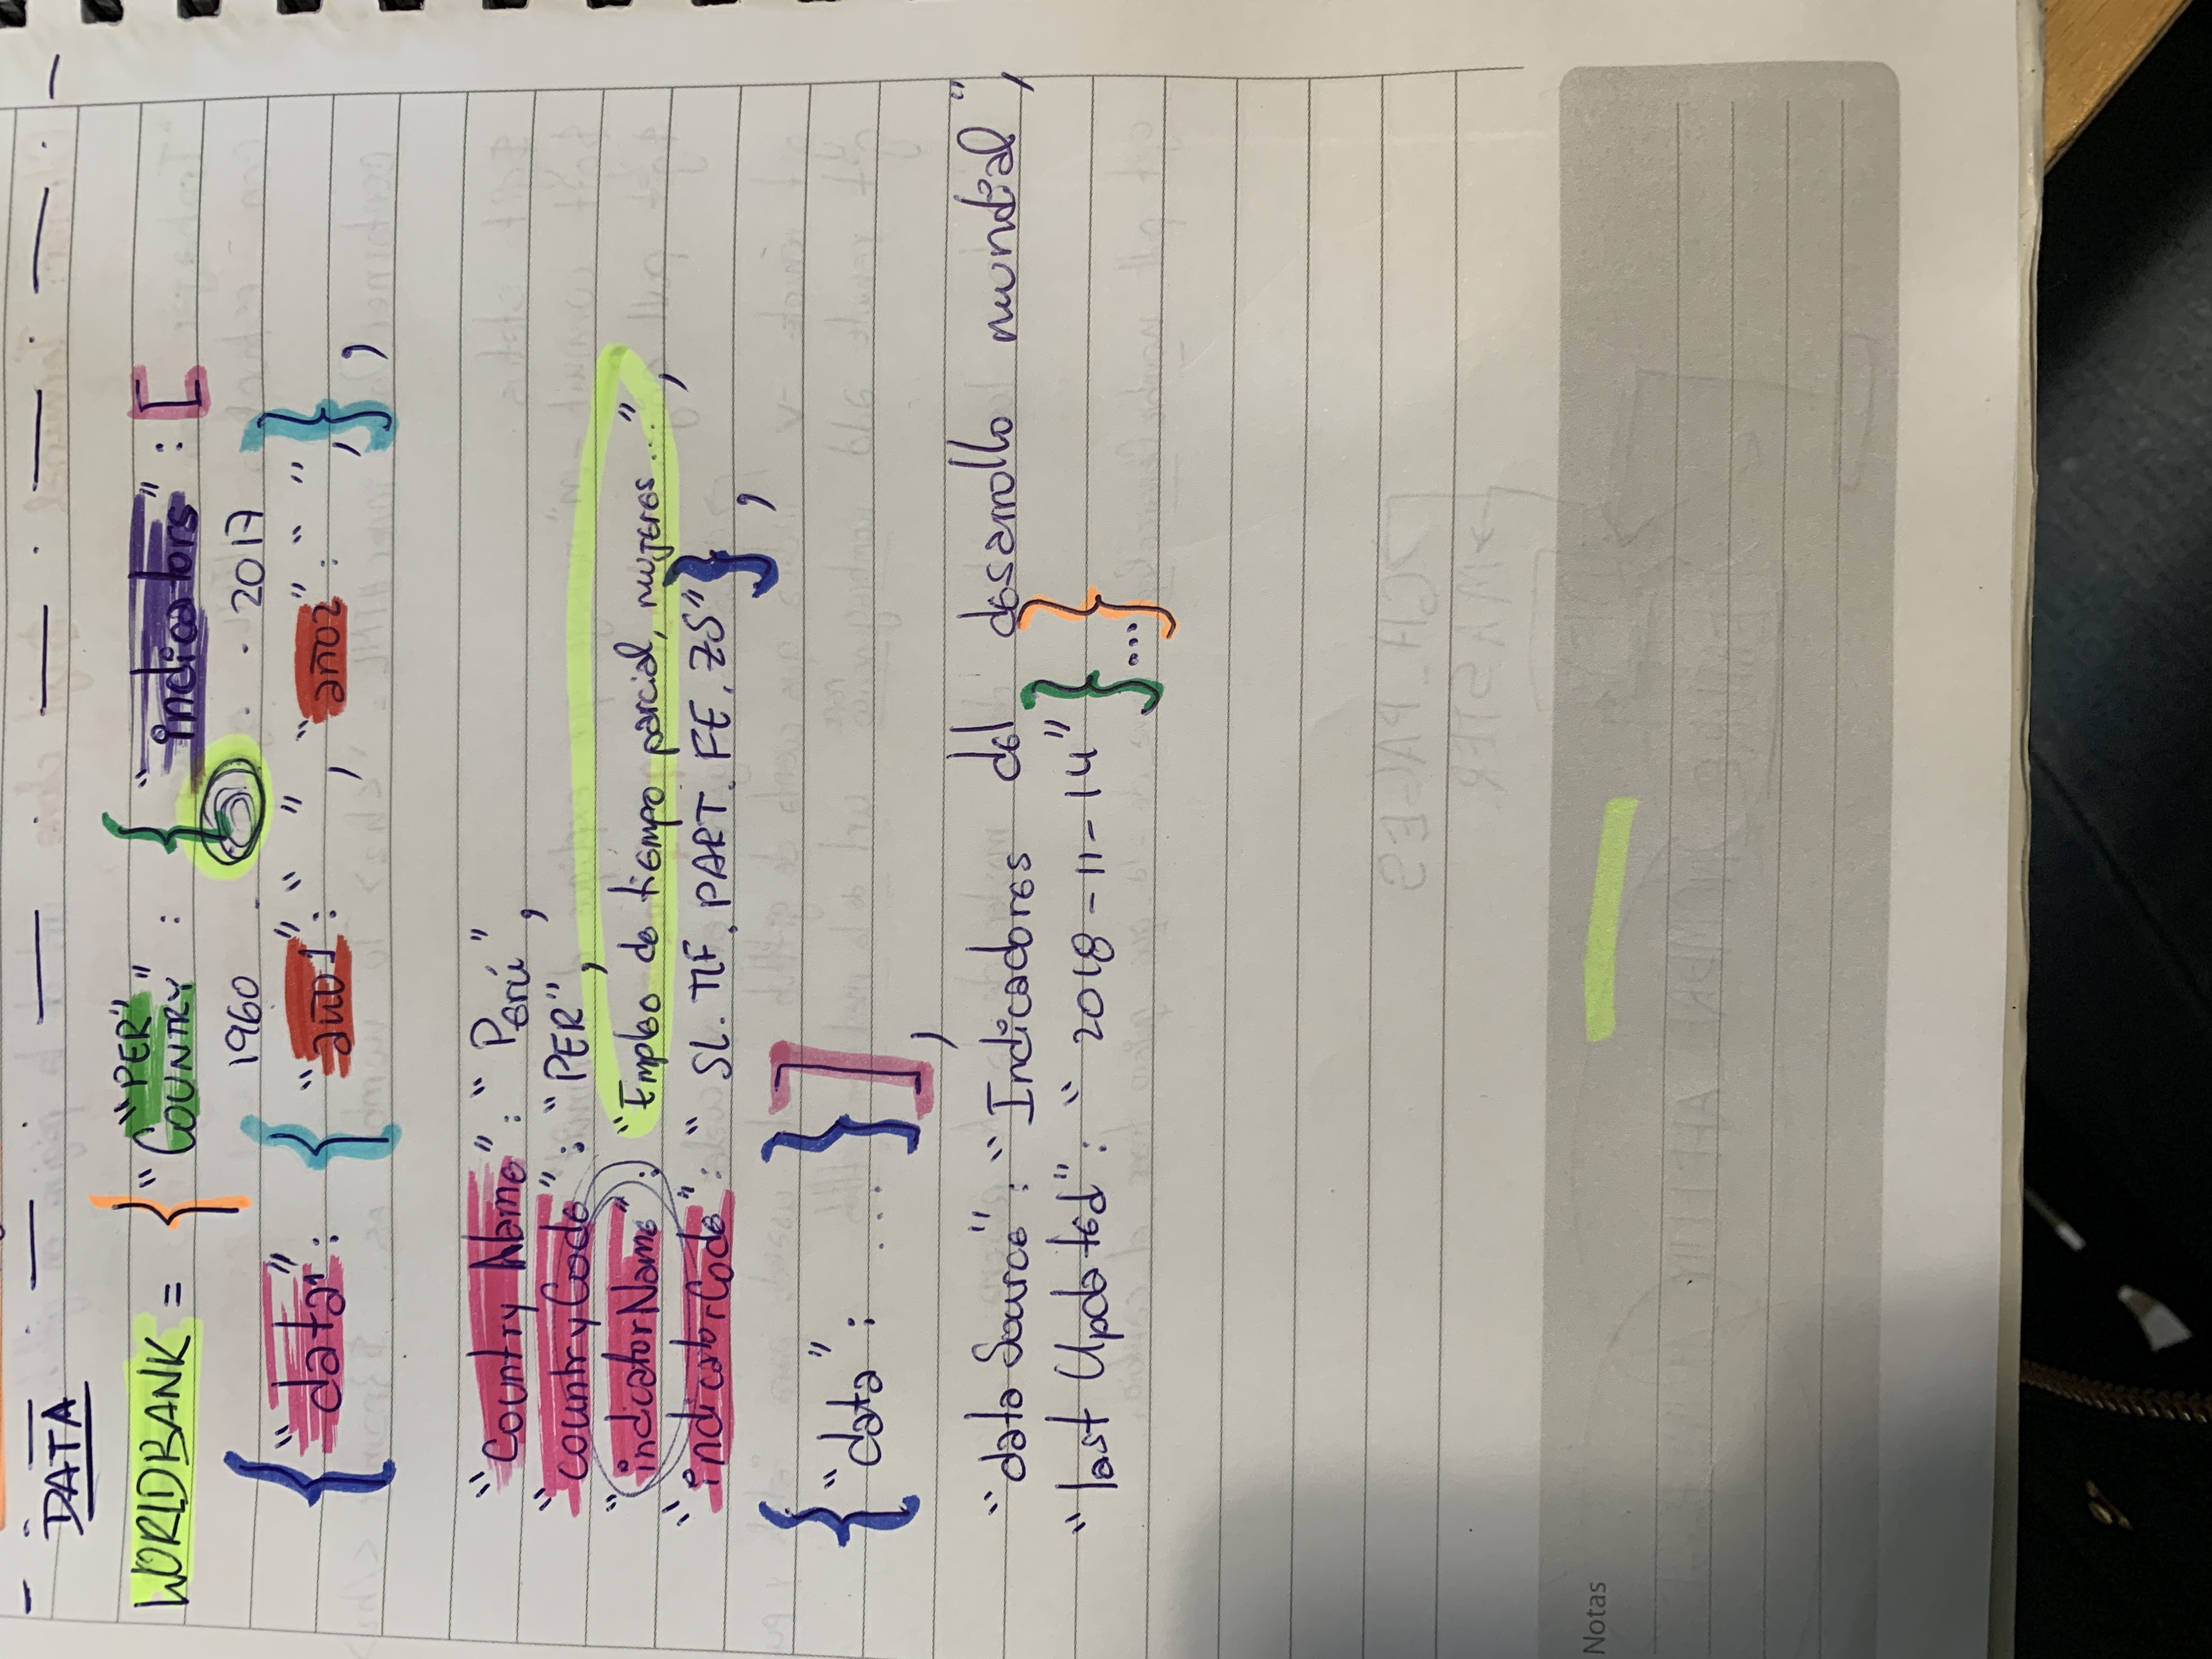 DATA
"PER"
WORLDBANK = { "COUNTRY" : { "indicators" : [
1960 . . . 2017
{ "data" : { "año1" : " " , "año2" : " " , } ,
"Country Name" : "Perú",
"countryCode" : "PER",
"indicatorName" : "Empleo de tiempo parcial, mujeres...",
"indicatorCode" : "SL. TLF. PART. FE. ZS" } ,
{ "data" : ... } ] ,
"data Source" : "Indicadores del desarrollo mundial",
"last Updated" : "2018-11-14" } ... }
Notas